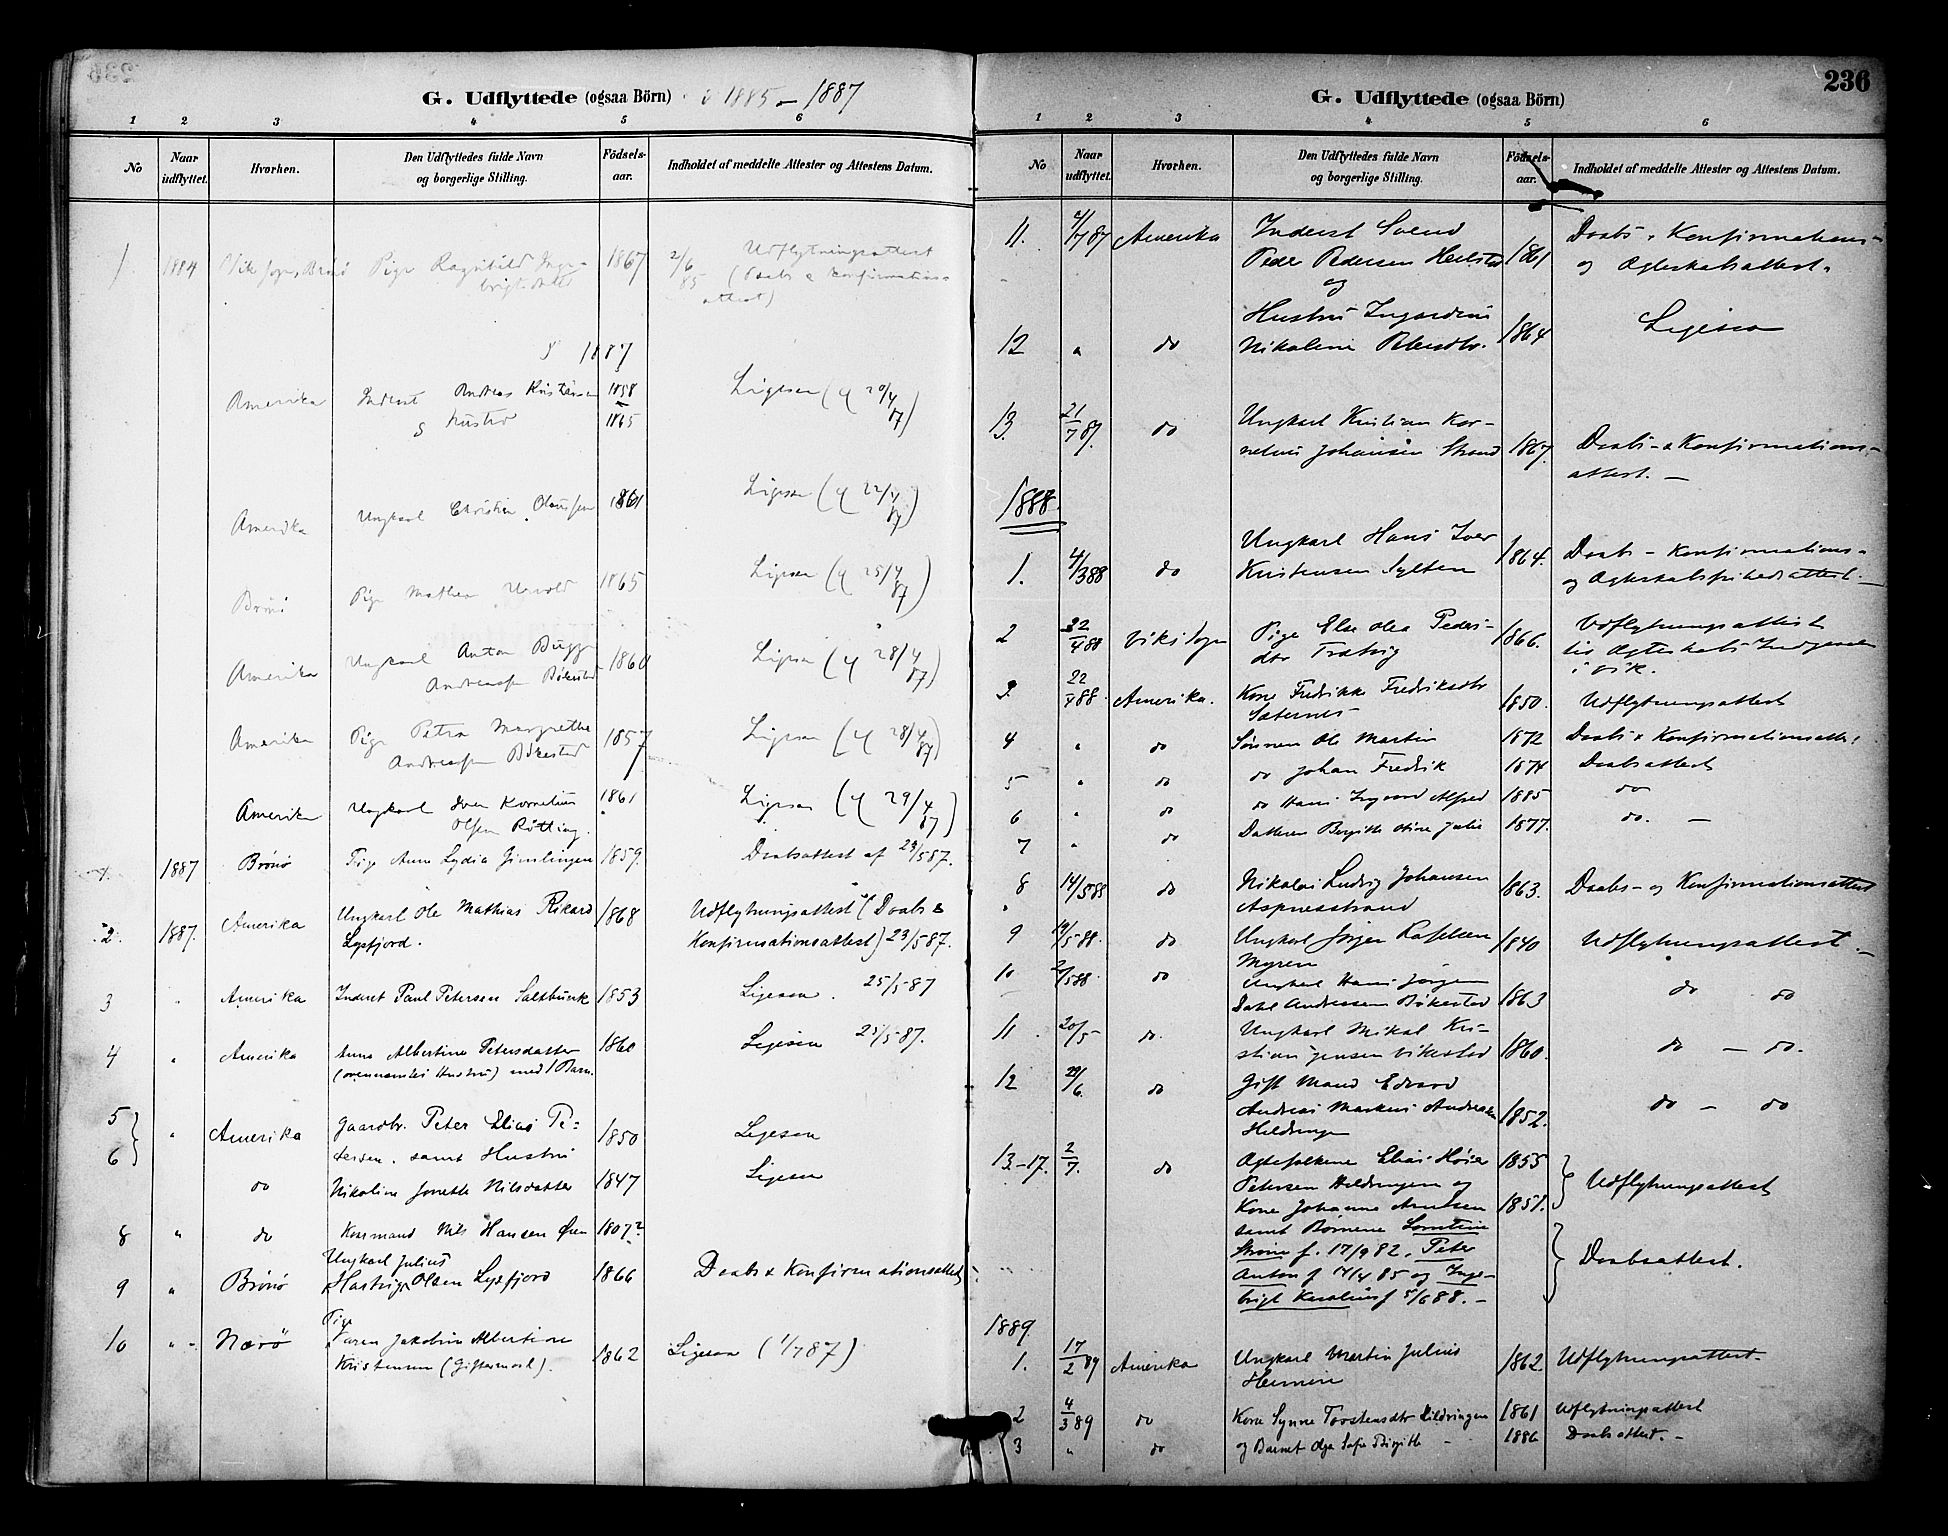 G. Udflyttede (ogsaa Börn) 1885 – 1887
1 2 3 4 5 6
No Naar udflyttet. Hvorhen. Den Udflyttedes fulde Navn og borgerlige Stilling. Födsels-aar. Indholdet af meddelte Attester og Attestens Datum.
1 1884 Brönö Pige Ragnhild Inge- 1867 2/6 85 Udflytningsattest
brigtsdatter (Daabs & Konfirmations-
attest)
1887
Amerika Inderst Andreas Kristensen 1858 Ligesaa (20/4 87)
Hustru 1865
Amerika Ungkarl Christian Olaussen 1861 Ligesaa (22/4 87)
Brönö Pige Mathea 1865 Ligesaa (25/4 87)
Amerika Ungkarl Anton Bugge 1860 Ligesaa (28/4 87)
Andreassen Bökestad
Amerika Pige Petra Margrethe 1857 Ligesaa (28/4 87)
Andreassen Bökestad
Amerika Ungkarl Iver Kornelius 1861 Ligesaa (29/4 87)
Olsen Rötting.
1. 1887 Brönö Pige Anne Lydia 1859. Daabsattest af 23/5 87.
2. 1887. Amerika Ungkarl Ole Mathias Rikard 1868 Udflytningsattest (Daabs &
Lysfjord. Konfirmationsattest) 23/5 87.
3 " Amerika Inderst Paul Petersen 1853 Ligesaa. 25/5 87
4 " Amerika Anna Albertine Petersdatter 1860 Ligesaa 25/5 87.
(ovennævntes Hustru) med 1 Barn.
5 " Amerika Gaardbr. Peter Elias Pe- 1850 Ligesaa
6 tersen. samt Hustru
do Nikoline Jonette Nilsdatter 1847 Ligesaa
8 " do Kaarmand Nils Hansen Øren 1807?
Ungkarl Julius
9 " Brönö Hartvig Olsen Lysfjord 1866 Daabs & Konfirmationsattest
Pige
10 " Nærö Karen Jakobine Albertine
Kristensen (Giftermaal). 1862 Ligesaa (1/7 87)
236
G. Udflyttede (ogsaa Börn)
1 2 3 4 5 6
No Naar udflyttet. Hvorhen. Den Udflyttedes fulde Navn og borgerlige Stilling. Födsels-aar. Indholdet af meddelte Attester og Attestens Datum.
11. 4/7 87 Amerika Inderst Svend Daabs- Konfirmations-
Peder Pedersen 1861 og Ægteskabsattest.
og
Hustru Ingardine
12 " do Nikoline Petersdtr. 1864 Ligesaa
13. 21/7 87. do Ungkarl Kristian Kor-
nelius Johansen Strand 1867. Daabs- & Konfirmations-
attest. –
1888.
1. 4/3 88 do Ungkarl Hans Iver 1864. Daabs- Konfirmations-
Kristensen Sylten og Ægteskabsfrihedsattest. –
2 22/4 88 Viks Sogn Pige Else Olea Peders- 1866. Udflytningsattest
dtr til Ægteskabs Indgaaelse
i Vik.
3. 22/4 88. Amerika. Kone Fredrikke Fredriksdtr 1850. Udflytningsattest
Sæternes
4 " do Sönnen Ole Martin 1872 Daabs & Konfirmationsattest
5 " do do Johan Fredrik 1874 Daabsattest
6 " do do Hans Ingvard Alfred 1885 do
7 " do Datteren Birgitte Oline Julie 1877. do. –
8 14/5 88 do Nikolai Ludvig Johansen 1863. Daabs- og Konfirmationsattest
Aspnesstrand
9 19/5 88. do Ungkarl Jörgen Rafelsen 1840 Udflytningsattest. –
Myren
10 20/5 88. do Ungkarl Hans Jörgen
Dahl Andreassen Bökestad 1863 do do
11 20/5 do. Ungkarl Mikal Kri-
stian Jensen Vikestad 1860. do – do.
12 29/6. do Gift Mand Edvard
Andreas Markus Andreasen 1852. do – do
Hildringen
13–17. 2/7. do Ægtefolkene Elias Höier 1855
Petersen Hildringen og Udflytningsattest
Kone Johanne Arntsen 1851.
samt Börnene
f. 17/9 82, Peter
Anton f 4/4 85 og Inge- Daabsattest.
brigt f 5/6 88. –
1889.
1. 17/2 89 Amerika Ungkarl Martin Julius 1862. Udflytningsattest.
2 4/3 89 do Kone Synne Torstensdtr Hildringen 1861 Udflytningsattest
3 " do og Barnet Olga Sofie Birgitte – 1886 Daabsattest. –